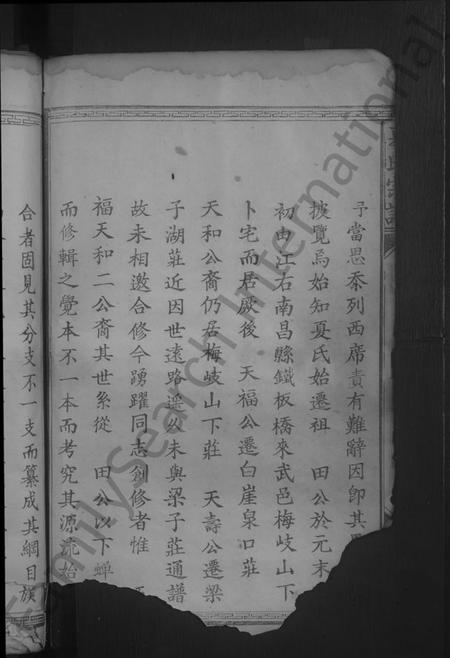 予當思忝列西席責有難辭因即其
披覽焉始知夏氏始遷祖 田公於元末
初由江右南昌縣鐵板橋來武邑梅岐山下
卜宅而居厥後 天福公遷白崖泉口莊
天和公裔仍居梅岐山下莊 天壽公遷梁
子湖莊近因世遠路遥久未與梁子莊通譜
故未相邀合修今踴躍同志創修者惟
福天和二公裔其世系從 田公以下蟬
而修輯之覺本不一本而考究其源流始
合者固見其分支不一支而纂成其綱目族
FamilySearch International